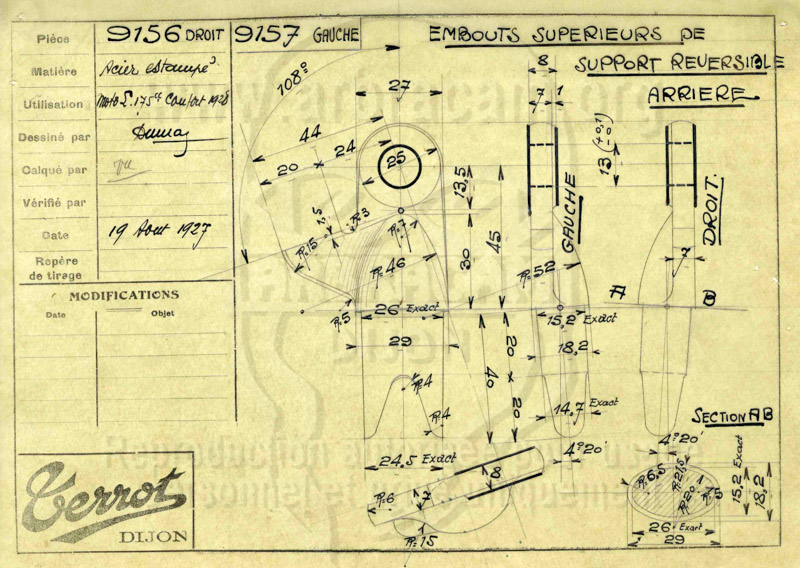 Pièce
9156 DROIT
9157 GAUCHE
EMBOUTS SUPERIEURS DE
SUPPORT REVERSIBLE
ARRIERE
Matière
Acier estampé
Utilisation
Moto L. 175cc Confort 1928
Dessiné par
Calqué par
Vérifié par
Date
19 Aout 1927
Repère
de tirage
MODIFICATIONS
Date
Objet
108°
27
44
24
20
25
1,5
R=3
R=15
R=46
R=5
13,5
30
45
26 Exact
29
R=4
R=4
20
40
20
24,5 Exact
8
7 1
GAUCHE
R=52
15,2 Exact
18,2
14,7 Exact
4°20'
13 (+0,1 -0)
DROIT.
7
A
B
R=6
7
8
1
R=15
SECTION AB
4°20'
R=6,5
R=21,5
15,2 Exact
18,2
26 Exact
29
Terrot
DIJON